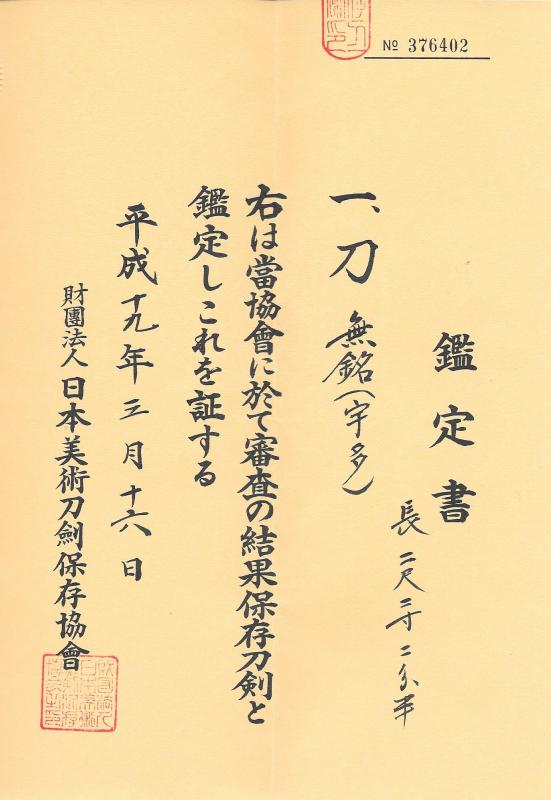 № 376402
鑑定書
長 二尺二寸二分半
一、刀 無銘(宇多)
右は當協會に於て審査の結果保存刀剣と
鑑定しこれを証する
平成十九年三月十六日
財團法人日本美術刀劍保存協會